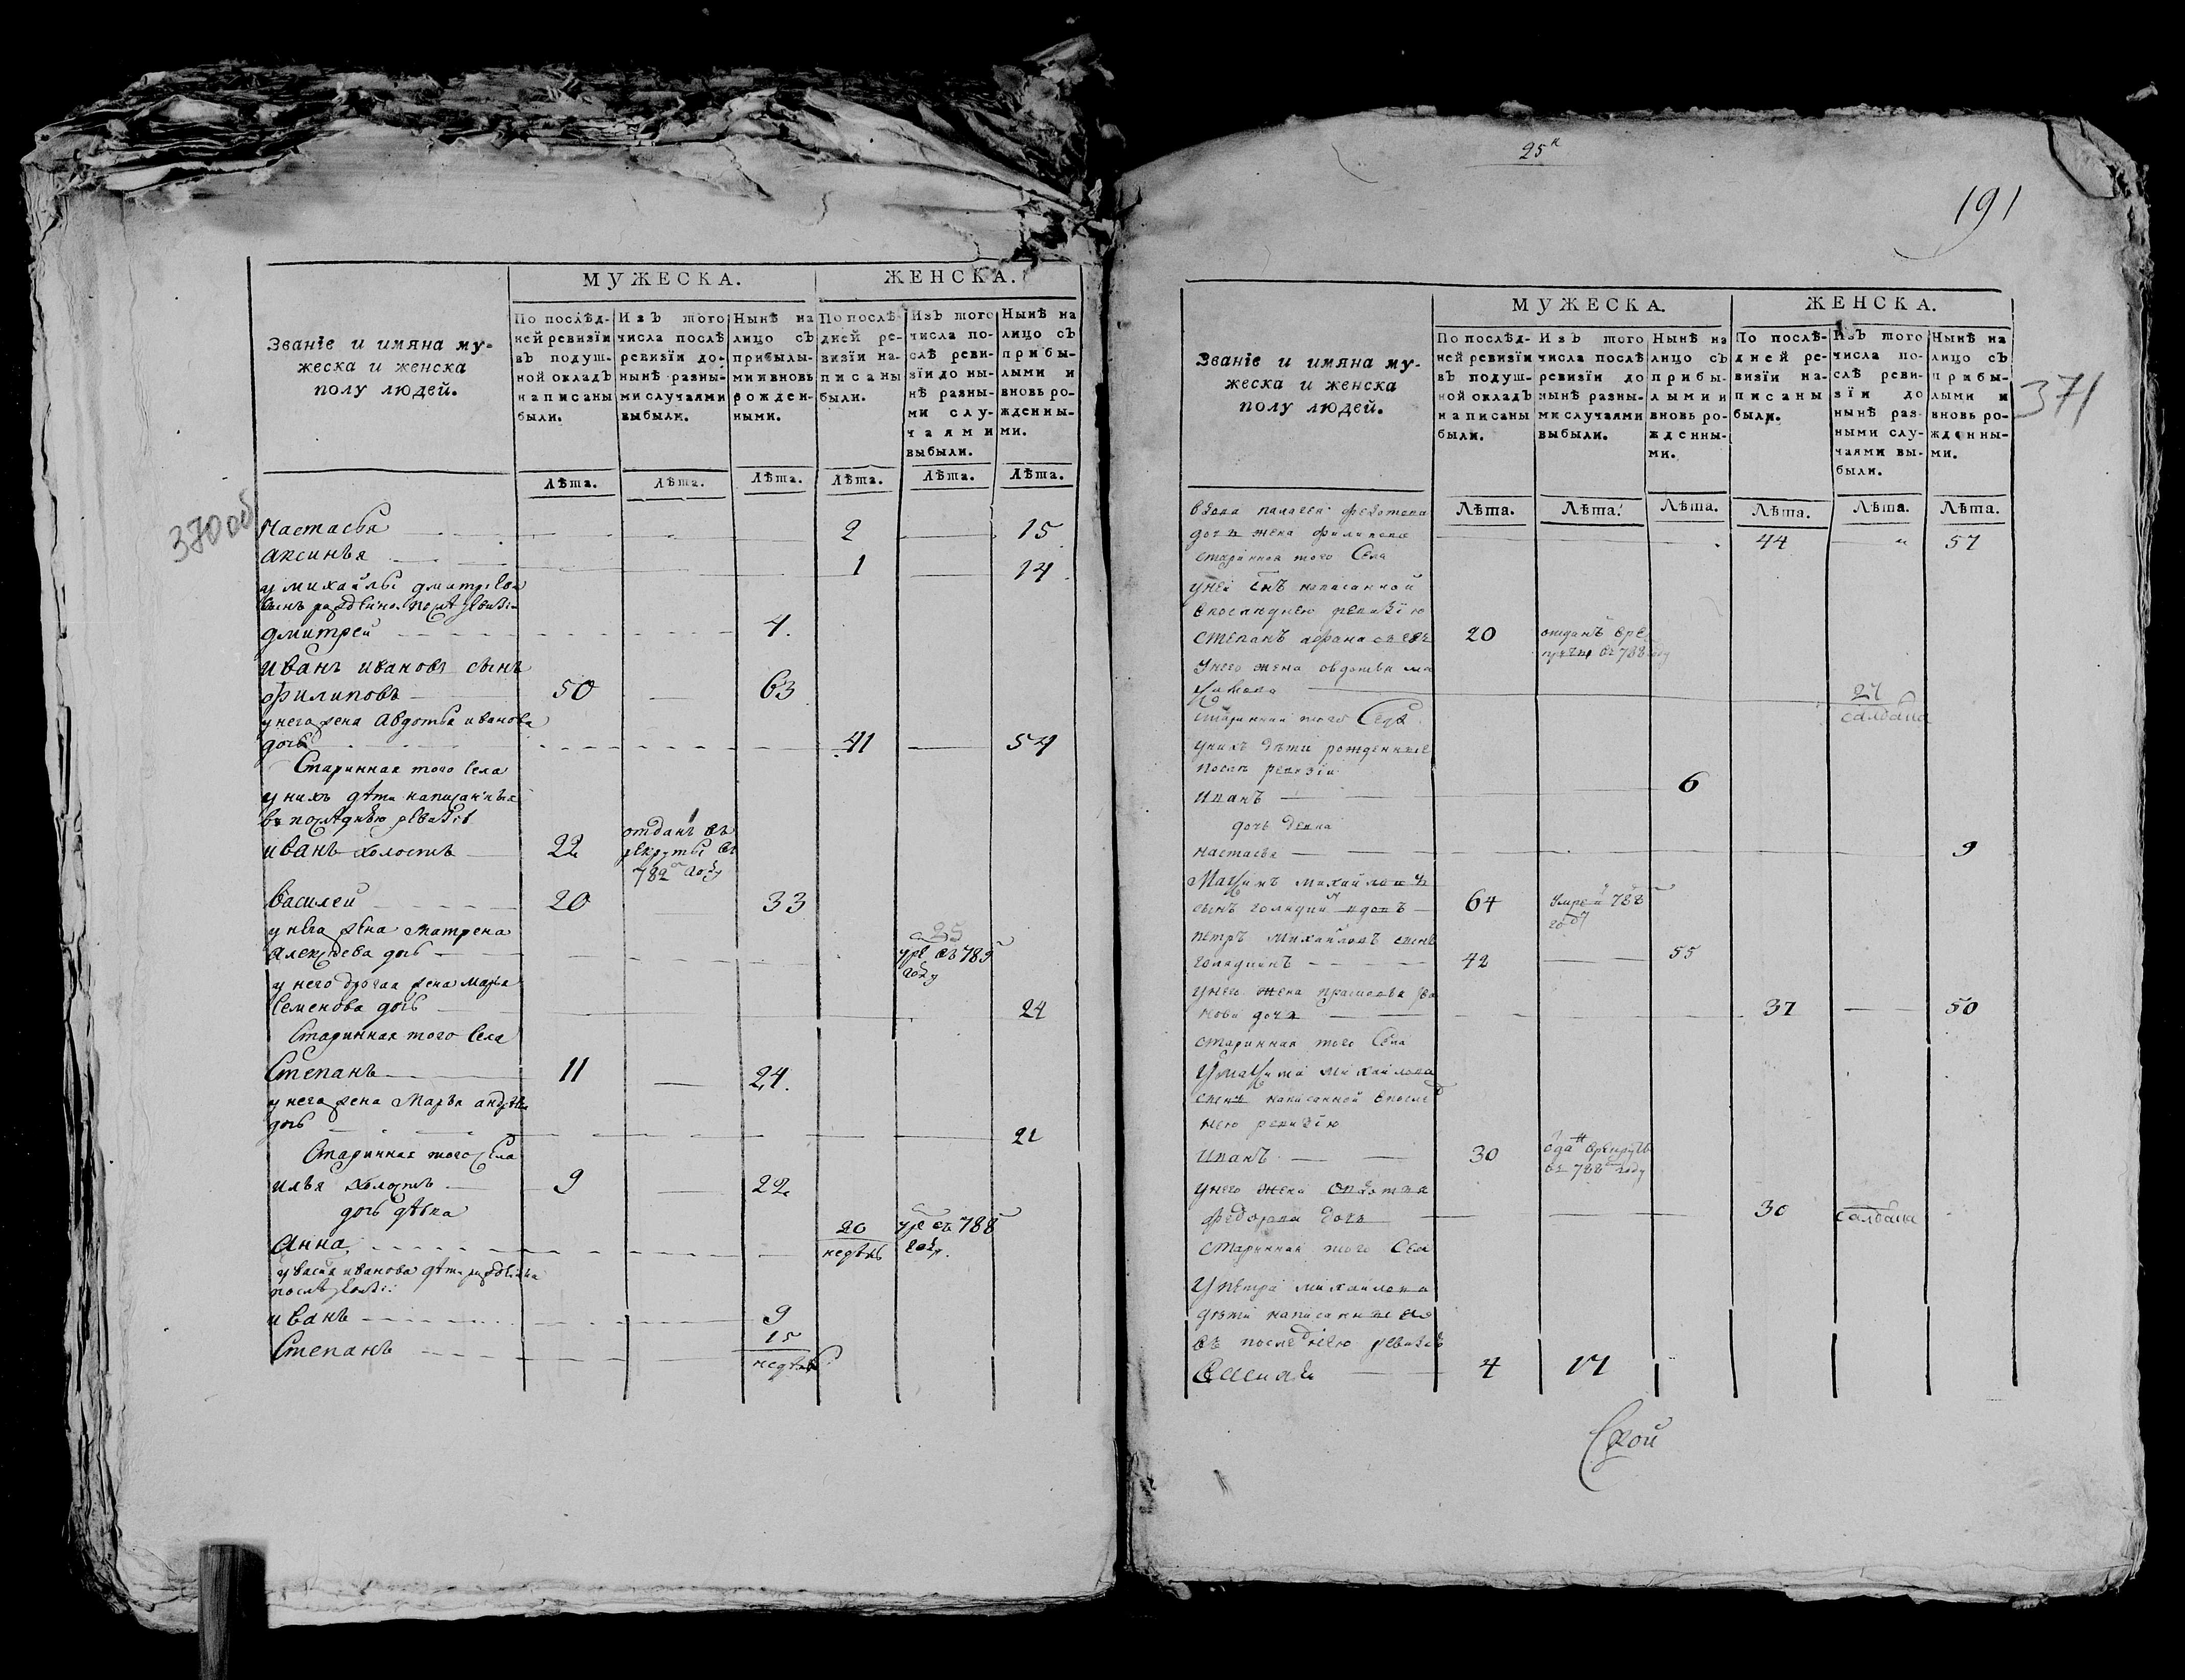 370 об
МУЖЕСКА. ЖЕНСКА.
Званіе и имяна му-
жеска и женска
полу людей.
По послѣд-
ней ревизіи
въ подуш-
ной окладъ
написаны
были.
Изъ того
числа послѣ
ревизіи до-
нынѣ разны-
ми случаями
выбыли.
Нынѣ на
лицо съ
прибылы-
ми и вновь
рожден-
ными.
По послѣ-
дней ре-
визіи на-
писаны
были.
Изъ того
числа по-
слѣ реви-
зіи до ны-
нѣ разны-
ми слу-
чаями
выбыли.
Нынѣ на
лицо съ
прибы-
лыми и
вновь ро-
жденны-
ми.
Лѣта. Лѣта. Лѣта. Лѣта. Лѣта. Лѣта.
Настасья 2 15
Аксинья 1 14
у михайлы дмитріева
сынъ рожденной послѣ ревизіи
дмитрей 4.
иванъ ивановъ сынъ
филиповъ 50 63
у него жена Авдотья иванова
дочь 41 54
Старинная того села
у нихъ дѣти написанныя
въ последнюю ревизію
иванъ холостъ 22 отданъ въ
рекруты въ
782 году
Василей 20 33
у него жена матрена
Алексѣева дочь 25
789
году
у него другая жена Марья
Семенова дочь 24
Старинная того села
Степанъ 11 24.
у него жена Марья андрѣева
дочь 21
Старинная того села
илья холостъ 9 22
дочь дѣвка
Анна 20
недѣль
788
году.
у Василья иванова дѣти рожденныя
послѣ ревизіи:
иванъ 9
Степанъ 15
недѣль
25
191
371
МУЖЕСКА. ЖЕНСКА.
Званіе и имяна му-
жеска и женска
полу людей.
По послѣд-
ней ревизіи
въ подуш-
ной окладъ
написаны
были.
Изъ того
числа послѣ
ревизіи до
нынѣ разны-
ми случаями
выбыли.
Нынѣ на
лицо съ
прибы-
лыми и
вновь ро-
жденны-
ми.
По послѣ-
дней ре-
визіи на-
писаны
были.
Изъ того
числа по-
слѣ реви-
зіи до
нынѣ раз-
ными слу-
чаями вы-
были.
Нынѣ на
лицо съ
прибы-
лыми и
вновь ро-
жденны-
ми.
Лѣта. Лѣта. Лѣта. Лѣта. Лѣта. Лѣта.
вдова палагея федотова
дочь жена филипова 44 57
старинная того Села
у ней сынъ написанной
впоследнею ревизію
степанъ афанасьевъ 20 отданъ
въ 788 году
у него жена овдотья
24
салдатка
старинная того Села
у нихъ дѣти рожденные
после ревизіи
Иванъ 6
дочь девка
настасья 9
Максимъ михайловъ
сынъ голядкинъ вдовъ 64 умре 788
году
петръ михайловъ сынъ
голядкинъ 42 55
у него жена прасковья
нова дочь 37 50
старинная того Села
у максима михайлова
сынъ написанной впослед
нею ревизію
Иванъ 30 врекруты
въ 788 году
у него жена овдотья
федорова дочь 30 салдатка
старинная того Села
у петра михайлова
дѣти написанные
въ последнею ревизію
Василей 4 17